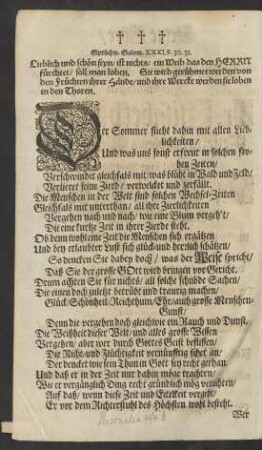 † † †
Sprüchw. Salom. XXXI. v. 30. 31.
Lieblich und schön seyn/ ist nichts/ ein Weib das den HERRN
fürchtet/ soll man loben. Sie wird gerühmet werden von
den Früchten ihrer Hände/ und ihre Wercke werden sie loben
in den Thoren.
Der Sommer flieht dahin mit allen Lieb-
lichkeiten/
Und was uns sonst erfreut in solchen fro-
hen Zeiten/
Verschwindet gleichfals mit/ was blüht in Wald und Feld/
Verlieret seine Zierd/ verwelcket und zerfällt.
Die Menschen in der Welt sind solchen Wechsel-Zeiten
Gleichfals mit unterthan/ all ihre Zärtlichkeiten
Vergehen nach und nach/ wie eine Blum vergeh't/
Die eine kurtze Zeit in ihrer Zierde steht.
Ob denn wohl eine Zeit die Menschen sich ergötzen
Und bey erlaubter Lust sich glück- und herrlich schätzen/
So dencken Sie dabey doch/ was der Weise spricht/
Daß Sie der grosse GOtt wird bringen vor Gericht.
Drum achten Sie für nichts/ all solche schnöde Sachen/
Die einen doch zuletzt betrübt und traurig machen/
Glück/ Schönheit/ Reichthum/ Ehr/ auch grosse Menschen-
Gunst/
Denn die vergehen doch gleichwie ein Rauch und Dunst.
Die Weißheit dieser Welt/ und alles grosse Wissen
Vergehen/ aber wer durch Gottes Geist beflissen/
Die Nicht- und Flüchtigkeit vernünfftig siehet an/
Der dencket wie sein Thun in Gott sey recht gethan/
Und daß er in der Zeit nur dahin möge trachten/
Wie er vergänglich Ding recht gründlich mög verachten/
Auf daß/ wenn diese Zeit und Eitelkeit vergeht/
Er vor dem Richterstuhl des Höchsten wohl besteht.
Wer